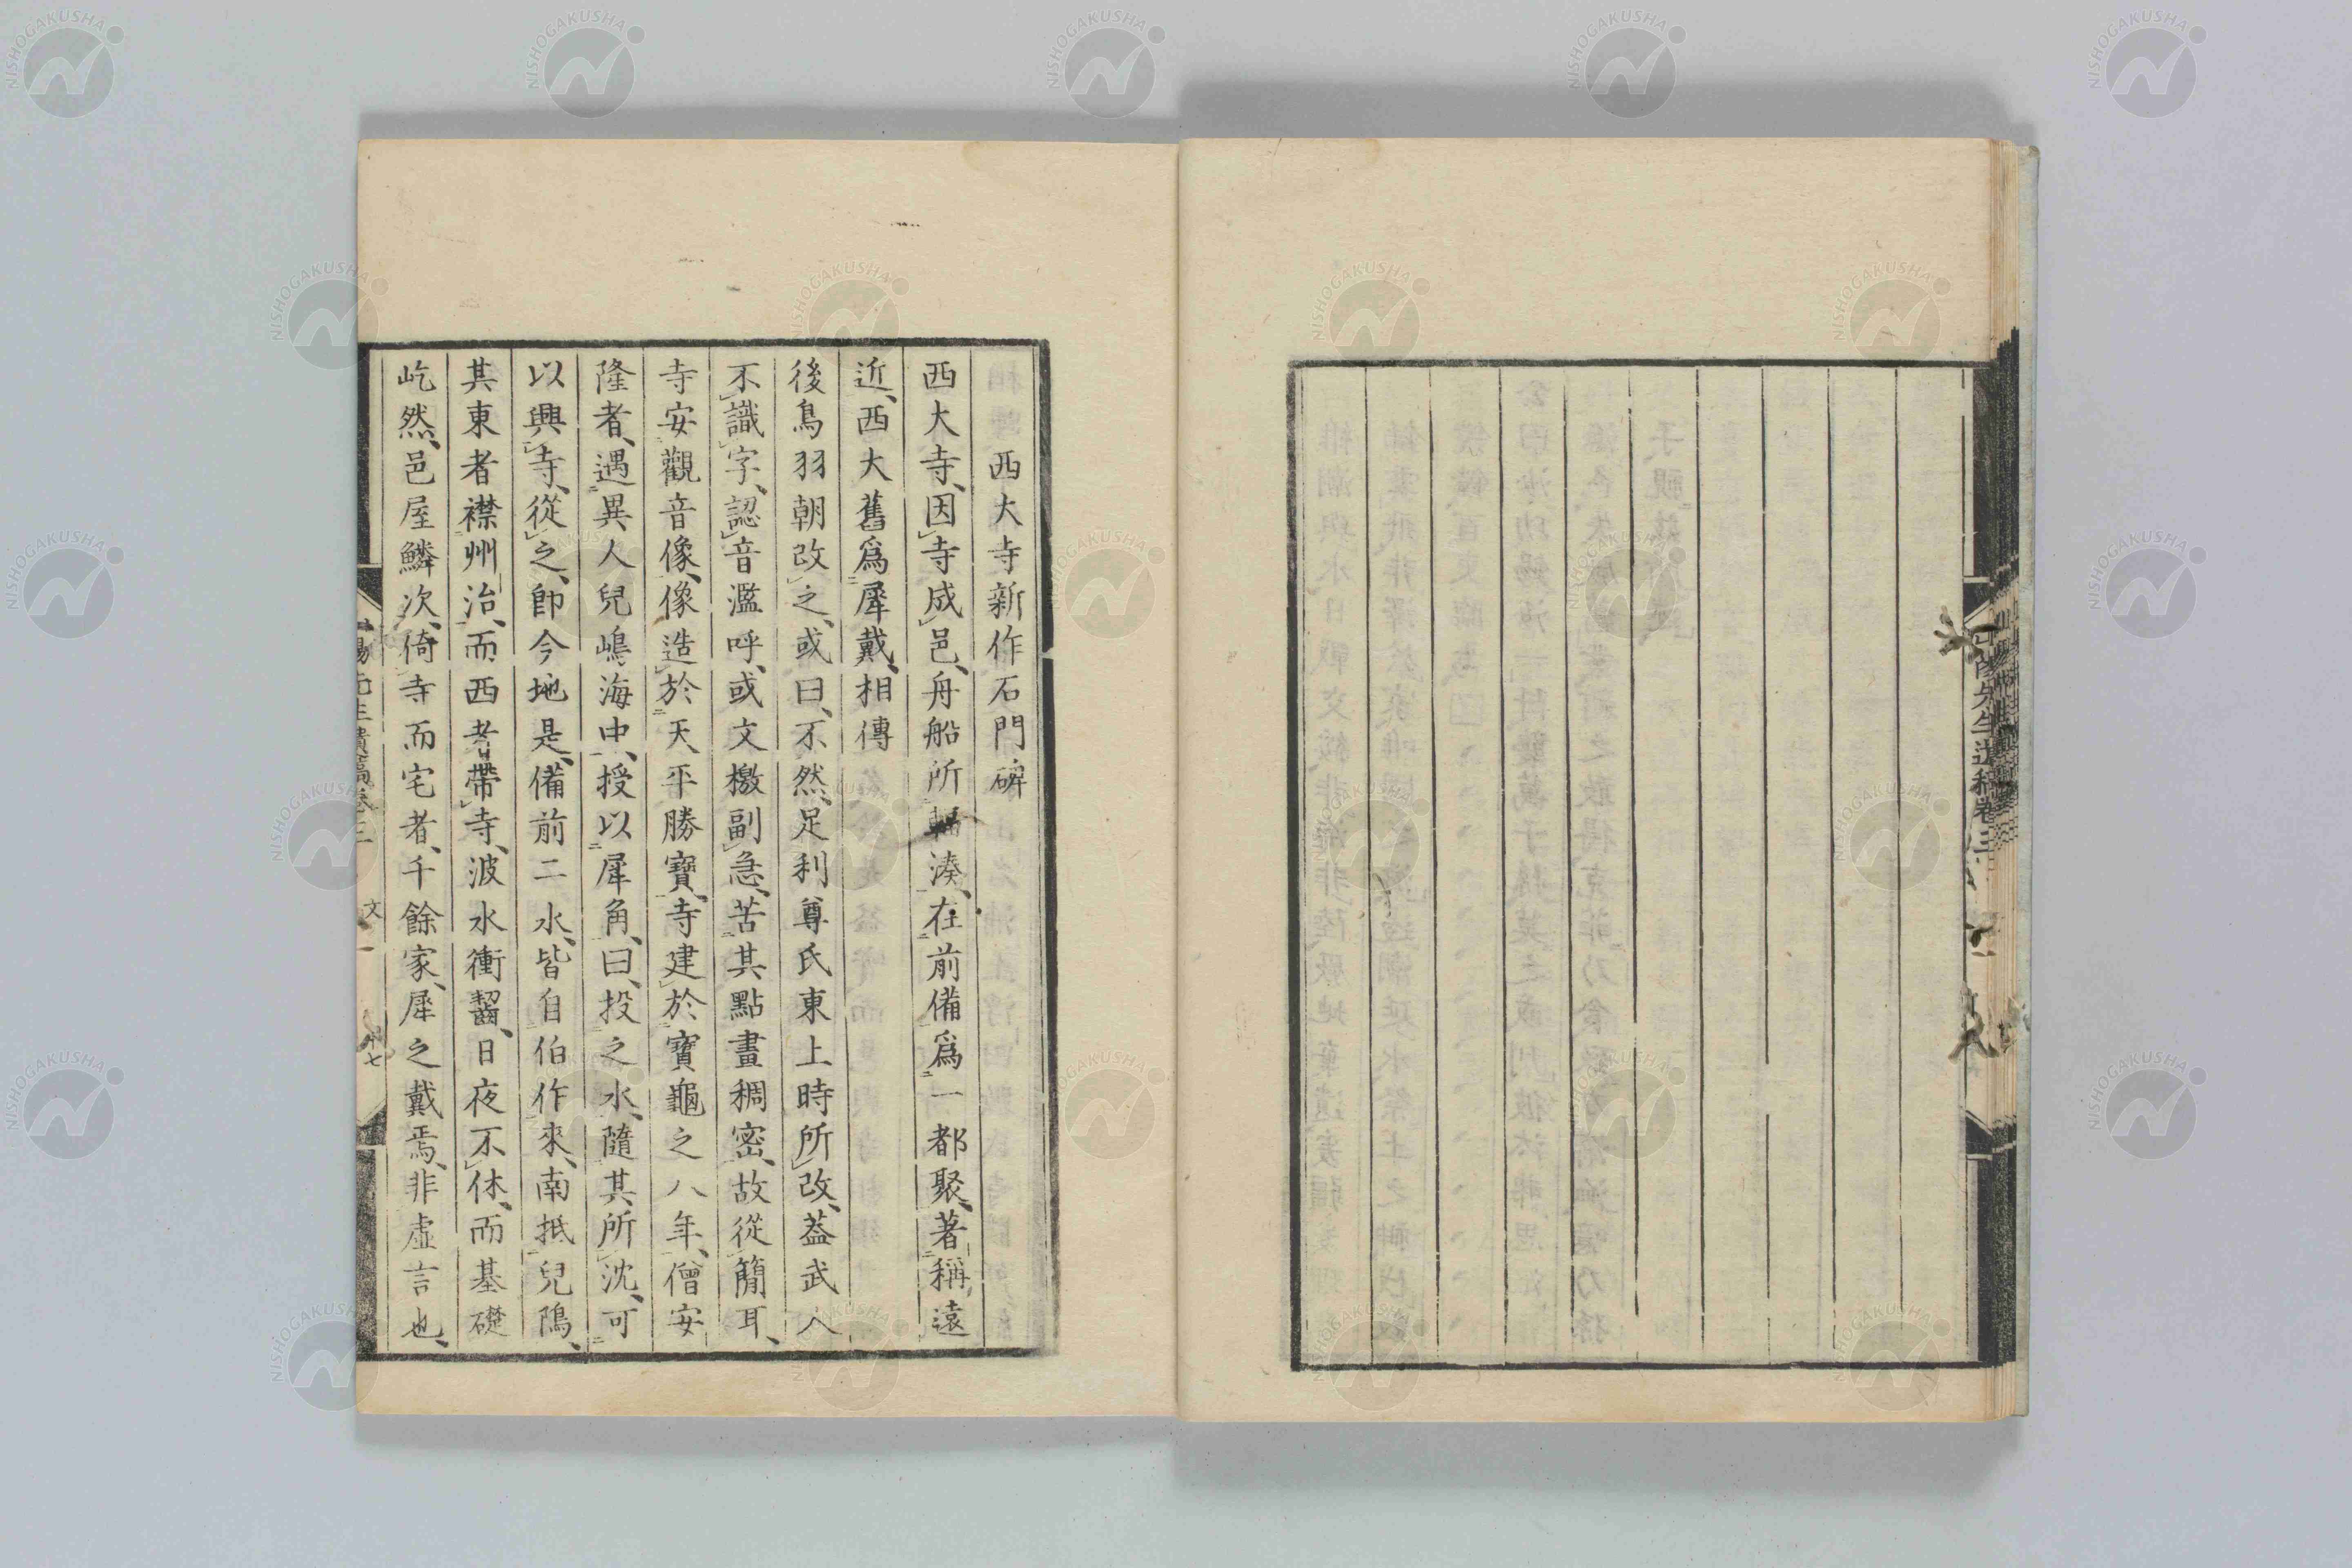 西大寺新作石門碑
西大寺、因寺成邑、舟船所輻湊、在前備爲一都聚、著稱遠
近、西大舊爲犀戴、相傳
後鳥羽朝改之、或曰、不然、足利尊氏東上時所改、蓋武人
不識字、認音濫呼、或文檄副急、苦其點畫稠密、故從簡耳、
寺安觀音像、像造於天平勝寶、寺建於寶龜之八年、僧安
隆者、遇異人兒嶋海中、授以犀角、曰、投之水、隨其所沈、可
以興寺、從之、卽今地是、備前二水、皆自伯作來、南抵兒隝、
其東者襟州治、而西者帶寺、波水衝齧、日夜不休、而基礎
屹然、邑屋鱗次、倚寺而宅者、千餘家、犀之戴焉、非虛言也、
陽先生遺稿卷三 文 十七
陽先生遺稿卷三
NISHOGAKUSHA